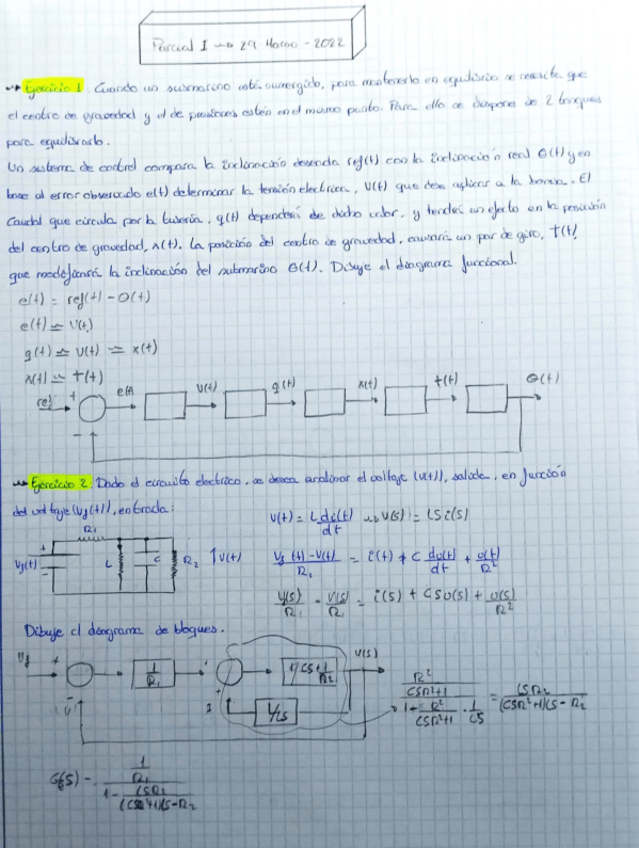 Parcial I → 29 Marzo - 2022
Ejercicio 1. Cuando un submarino está sumergido, para mantenerlo en equilibrio se necesita que
el centro de gravedad y el de presiones estén en el mismo punto. Para ello se dispone de 2 tanques
para equilibrarlo.
Un sistema de control compara la inclinación deseada ref(t) con la inclinación real θ(t) y en
base al error observado e(t) determinar la tensión electrica, U(t) que debe aplicar a la bomba. El
Caudal que circula por la tubería, q(t) dependerá de dicho valor, y tendrá un efecto en la posición
del centro de gravedad, x(t). La posición del centro de gravedad, causará un par de giro, T(t)
que modificará la inclinación del submarino θ(t). Dibuje el diagrama funcional.
e(t) = ref(t) - θ(t)
e(t) ≃ U(t)
q(t) ≃ U(t) ≃ x(t)
x(t) ≃ T(t)
ref + e(t) U(t) q(t) x(t) T(t) θ(t)
-
Ejercicio 2. Dado el circuito electrico, se desea analizar el voltaje (u(t)), salida, en función
del voltaje (Vg(t)), entrada:
R1
Vg(t) + - L C R2 ↑ V(t)
V(t) = L di(t)/dt → V(s) = LS i(s)
Vg(t) - V(t) / R1 = i(t) + C dv(t)/dt + v(t)/R2
V(s)/R1 - V(s)/R = i(s) + CSV(s) + v(s)/R2
Dibuje el diagrama de bloques.
Vg + 1/R1 1/CS+1/R2 V(s)
1/LS
R2/CSR2+1 / 1+ R2/CSR2+1 · 1/LS = LSR2/(CSR2+1)LS - R2
G(s) - 1/R1 / 1 - LSR2/(CSR2+1)LS-R2